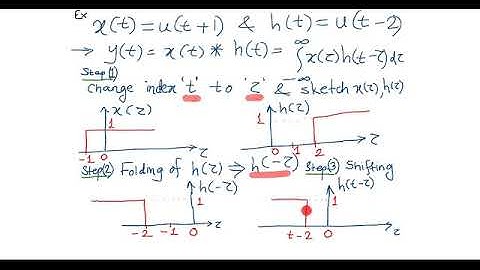 Ex x(t) = u(t+1) & h(t) = u(t-2)
→ y(t) = x(t) * h(t) = ∫_{-∞}^{∞} x(τ) h(t-τ) dτ
Step(1)
change index 't' to 'τ' & sketch x(τ), h(τ)
x(τ)
1
-1 0 τ
h(τ)
1
0 1 2 τ
Step(2) Folding of h(τ) ⇒ h(-τ)
h(-τ)
1
-2 -1 0 τ
Step(3) Shifting
h(t-τ)
1
t-2 0 τ